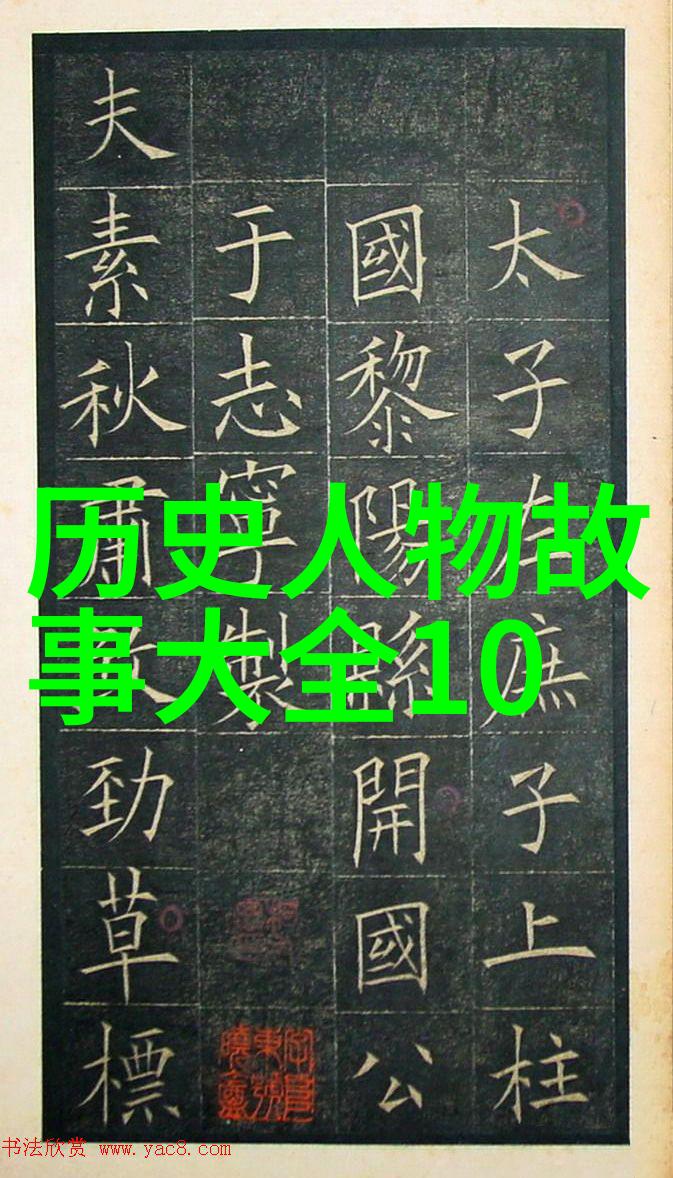 太子左庶子上柱
國黎陽縣開國公
于志寧製
夫素秋肅殺勁草標
历史人物故
事大全10
书法欣赏 www.yac8.com